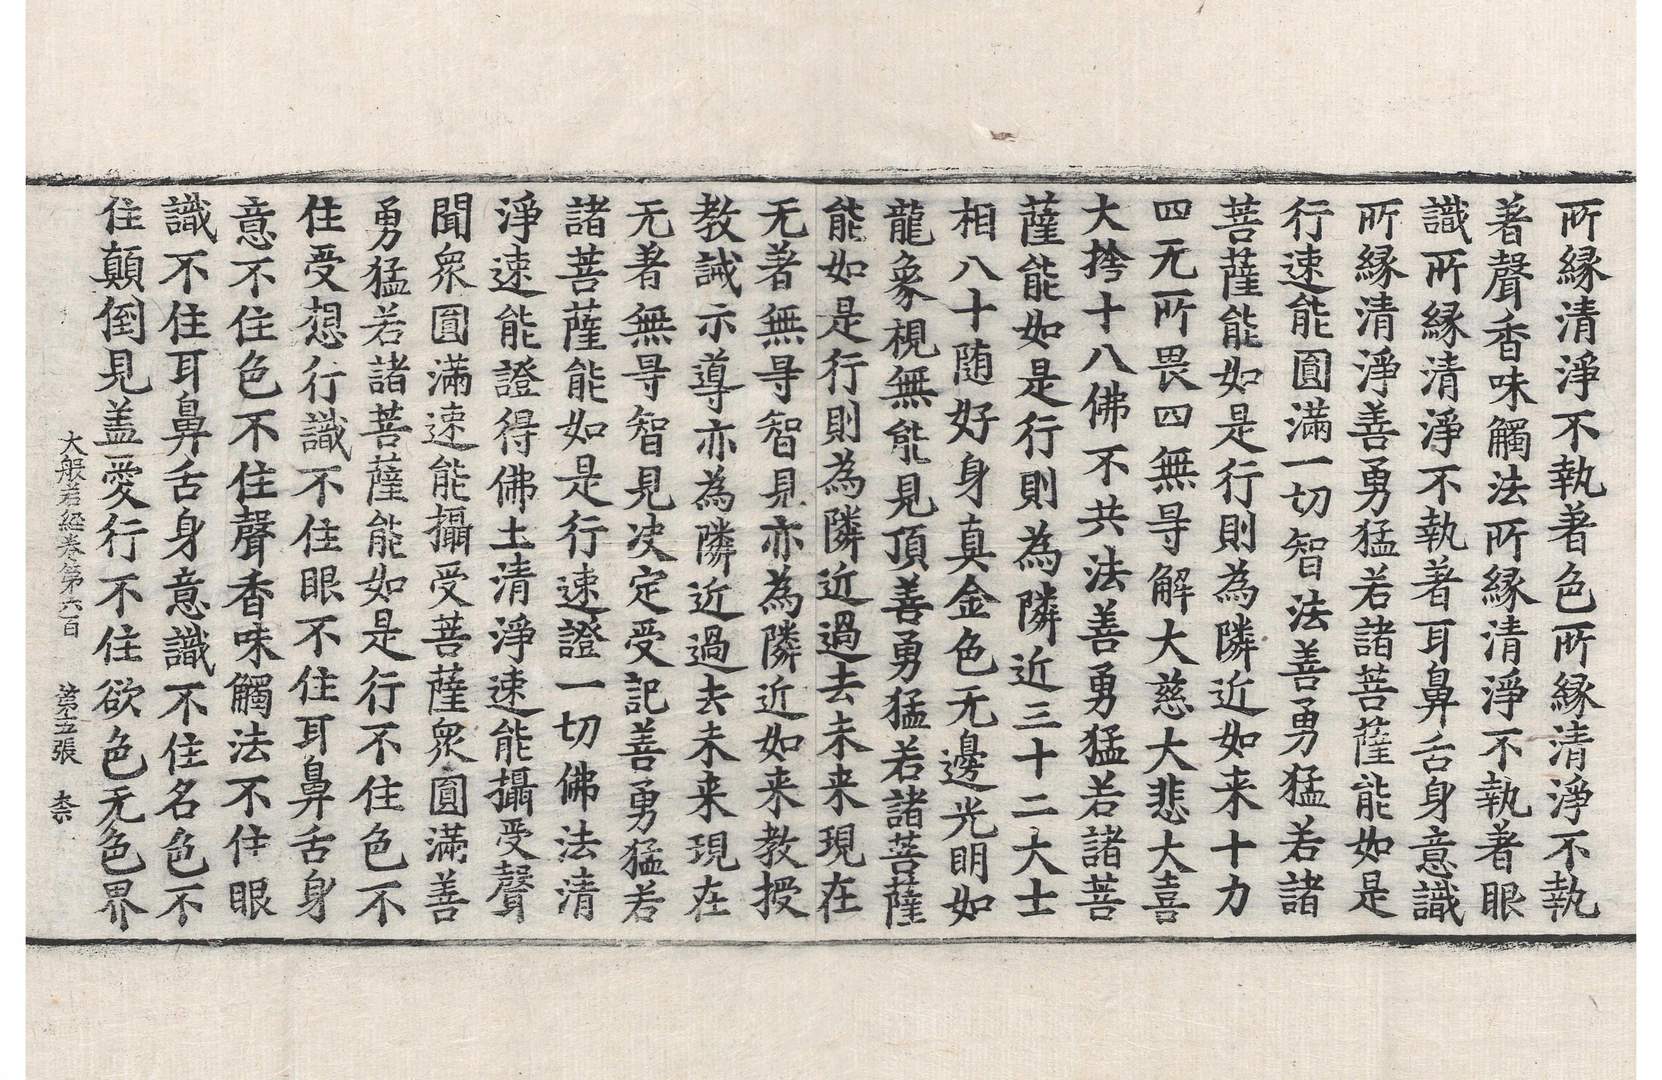 所縁清淨不執著色所縁清淨不執
著聲香味觸法所縁清淨不執著眼
識所縁清淨不執著耳鼻舌身意識
所縁清淨善勇猛若諸菩薩能如是
行速能圓滿一切智法善勇猛若諸
菩薩能如是行則為隣近如来十力
四无所畏四無㝵解大慈大悲大喜
大捨十八佛不共法善勇猛若諸菩
薩能如是行則為隣近三十二大士
相八十随好身真金色无邊光明如
龍象視無能見頂善勇猛若諸菩薩
能如是行則為隣近過去未来現在
无著無㝵智見亦為隣近如来教授
教誡示導亦為隣近過去未来現在
无著無㝵智見决定受記善勇猛若
諸菩薩能如是行速證一切佛法清
淨速能證得佛土清淨速能攝受聲
聞衆圓滿速能攝受菩薩衆圓滿善
勇猛若諸菩薩能如是行不住色不
住受想行識不住眼不住耳鼻舌身
意不住色不住聲香味觸法不住眼
識不住耳鼻舌身意識不住名色不
住顛倒見盖愛行不住欲色无色界
大般若經卷第六百 第十五張 柰